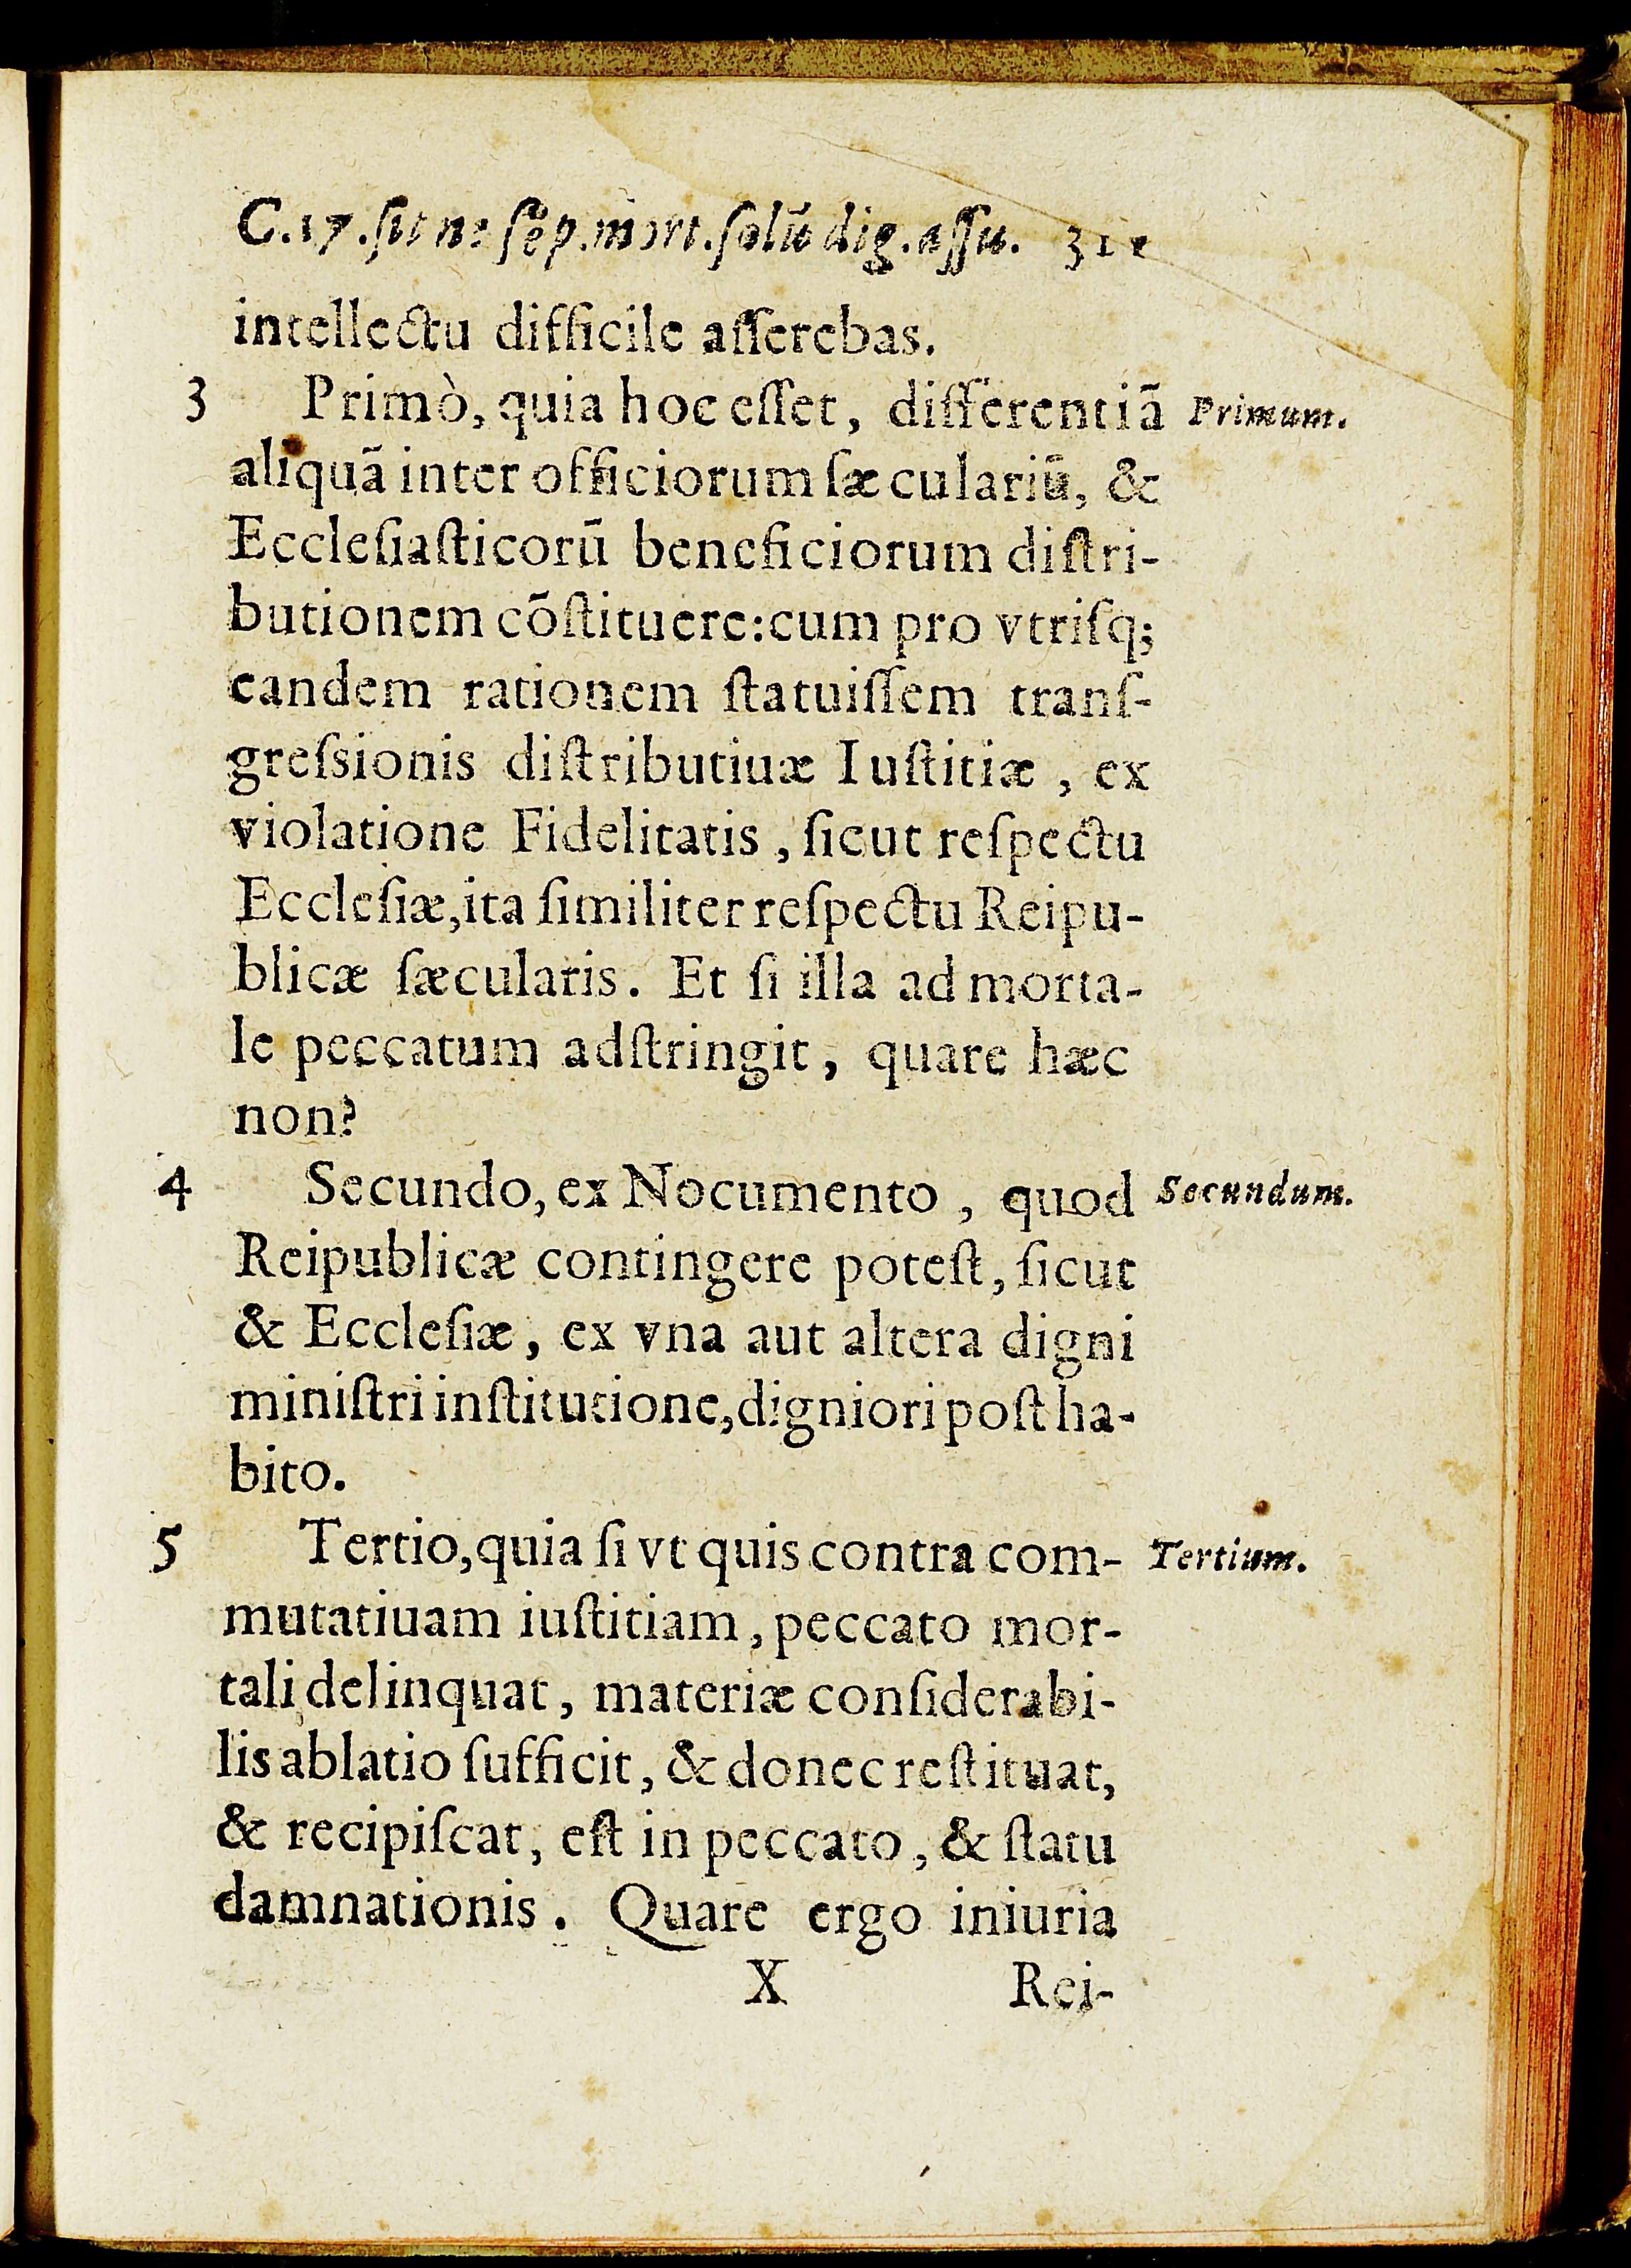 C.17.ſit ne ſēp.mort.ſolū dig.aſſu. 321
intellectu difficile aſſerebas.
3 Primò, quia hoc eſſet, differentiā Primum.
aliquā inter officiorum ſæculariū, &
Eccleſiaſticorū beneficiorum diſtri-
butionem cōſtituere: cum pro vtriſq;
eandem rationem ſtatuiſſem tranſ-
greſsionis diſtributiuæ Iuſtitiæ, ex
violatione Fidelitatis, ſicut reſpectu
Eccleſiæ, ita ſimiliter reſpectu Reipu-
blicæ ſæcularis. Et ſi illa ad morta-
le peccatum adſtringit, quare hæc
non?
4 Secundo, ex Nocumento, quod Secundum.
Reipublicæ contingere poteſt, ſicut
& Eccleſiæ, ex vna aut altera digni
miniſtri inſtitutione, digniori poſt ha-
bito.
5 Tertio, quia ſi vt quis contra com- Tertium.
mutatiuam iuſtitiam, peccato mor-
tali delinquat, materiæ conſiderabi-
lis ablatio ſufficit, & donec reſtituat,
& recipiſcat, eſt in peccato, & ſtatu
damnationis. Quare ergo iniuria
X Rei-